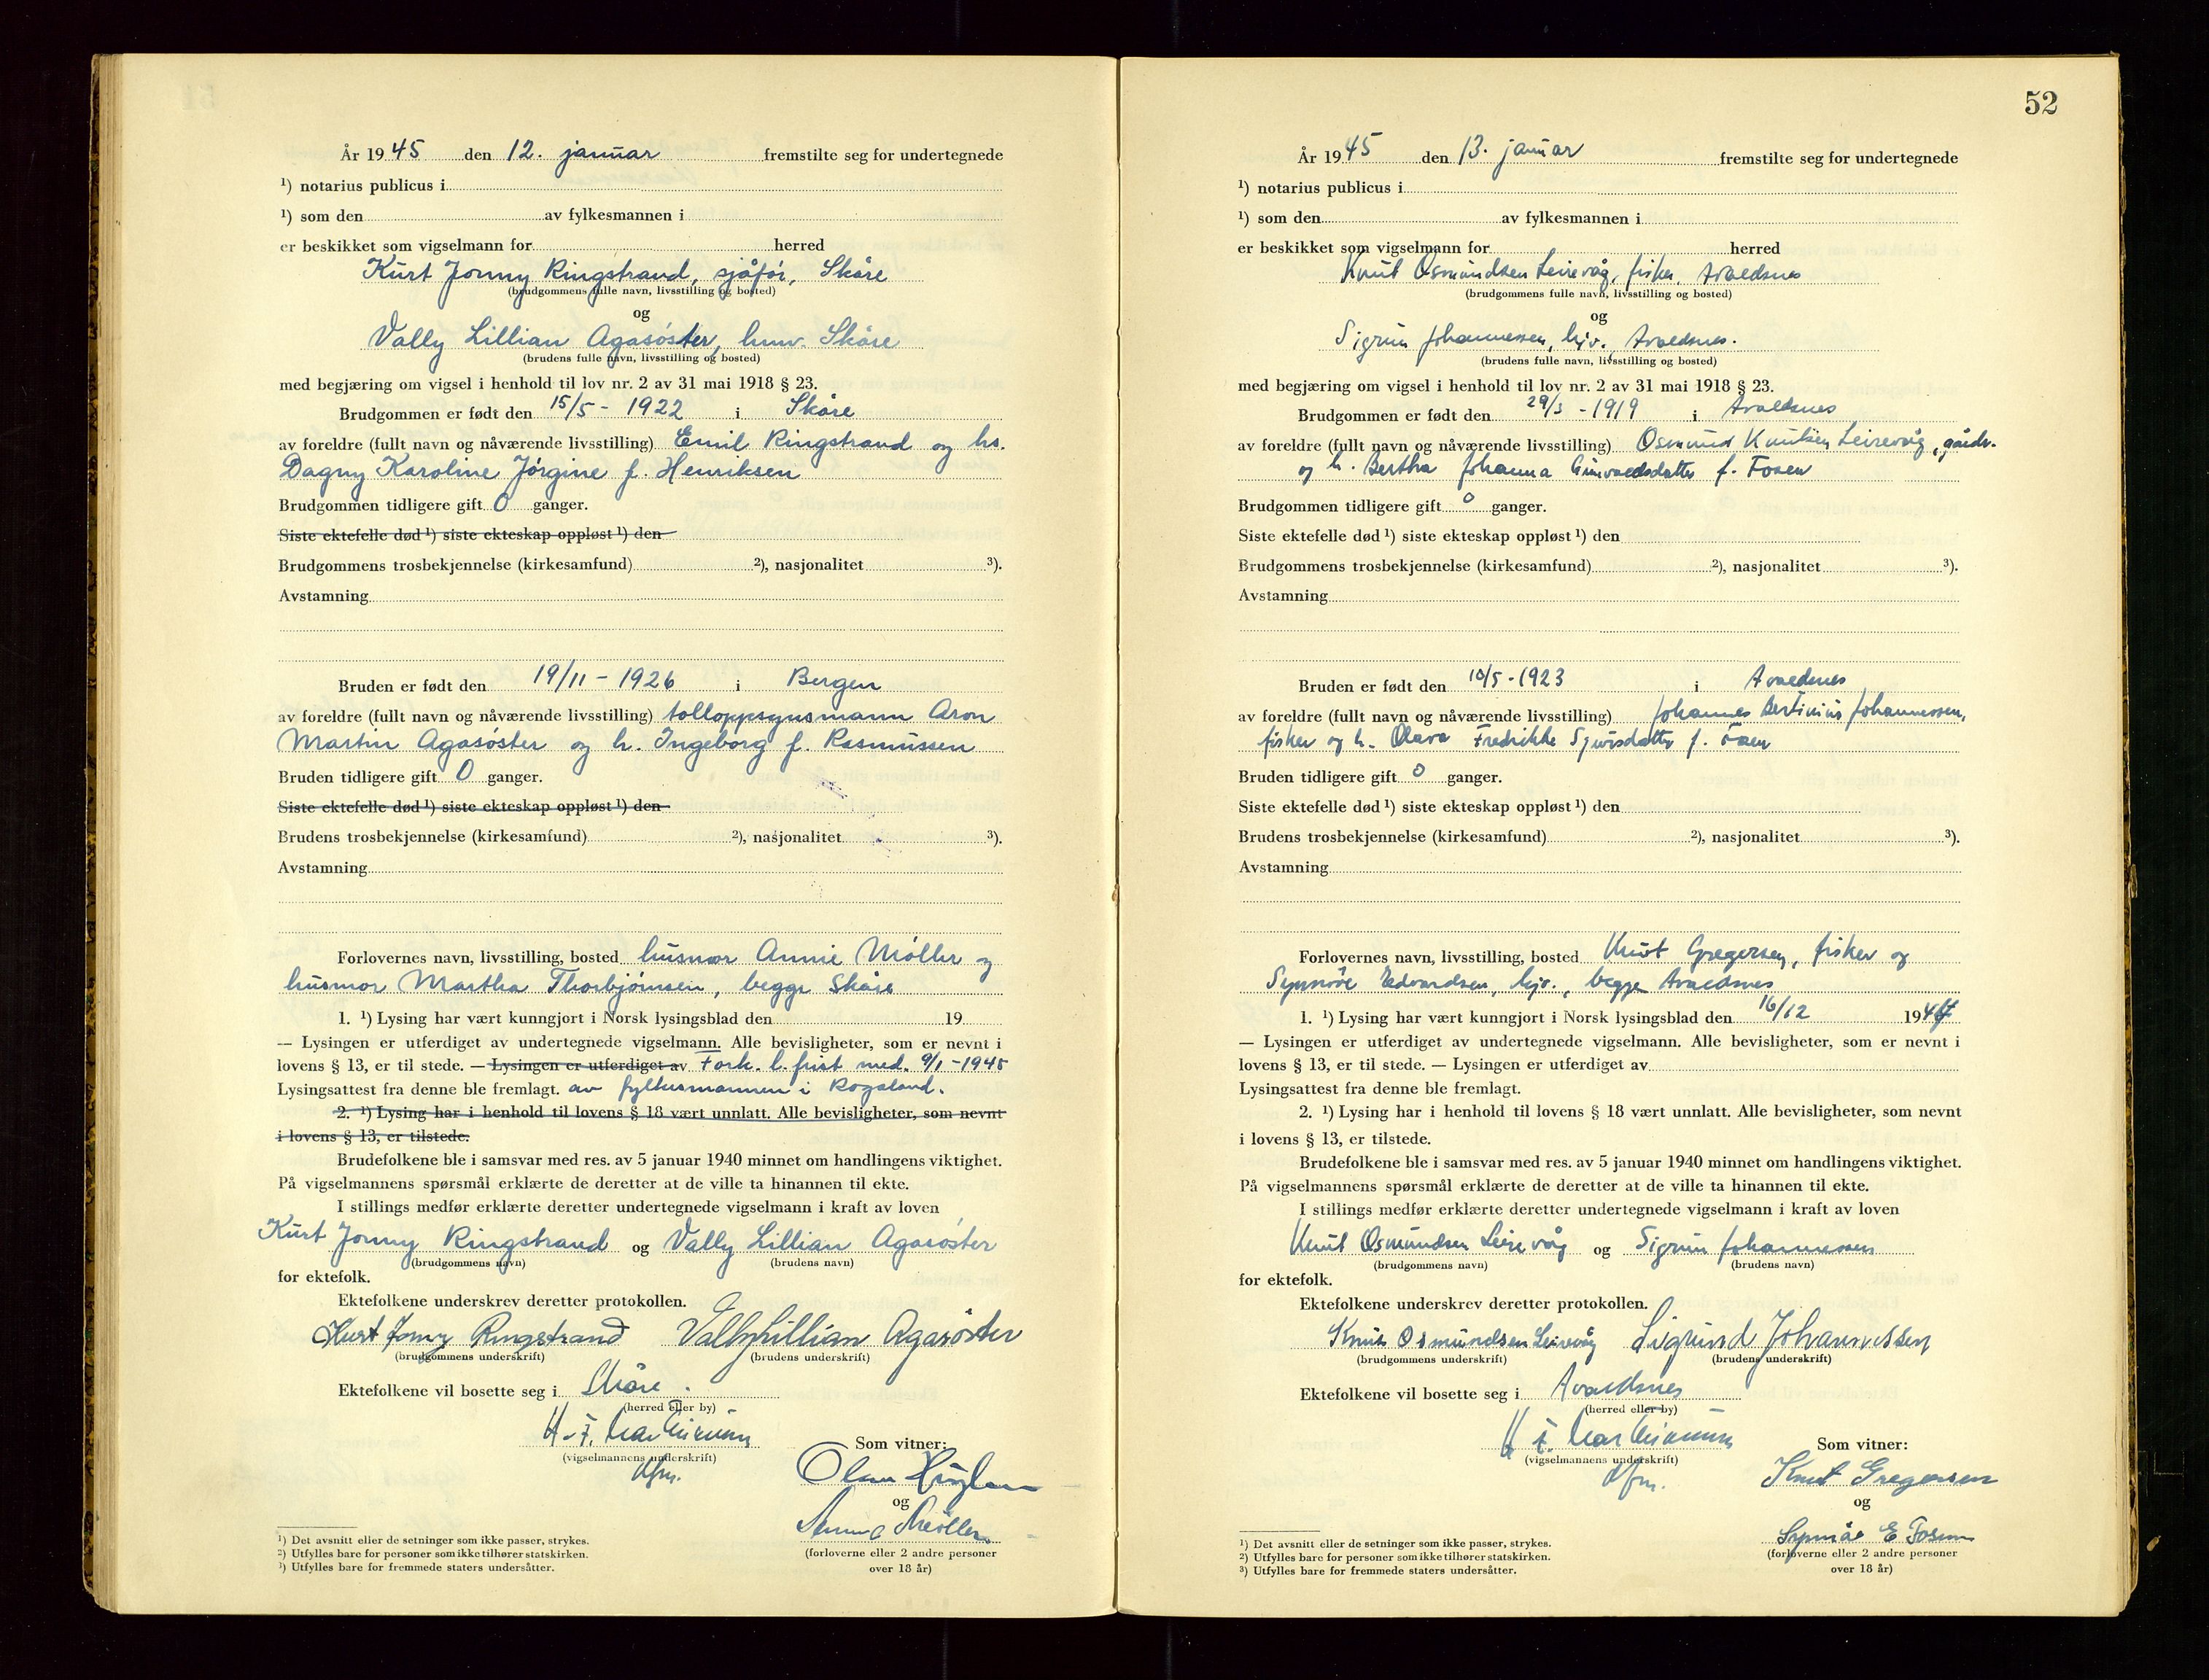 År 1945 den 12. januar fremstilte seg for undertegnede
¹) notarius publicus i
¹) som den av fylkesmannen i
er beskikket som vigselmann for herred
Kurt Jonny Ringstrand, sjåfør, Skåre
(brudgommens fulle navn, livsstilling og bosted)
og
Vally Lillian Agasøster, husv. Skåre
(brudens fulle navn, livsstilling og bosted)
med begjæring om vigsel i henhold til lov nr. 2 av 31 mai 1918 § 23.
Brudgommen er født den 15/5 - 1922 i Skåre
av foreldre (fullt navn og nåværende livsstilling) Emil Ringstrand og hs.
Dagny Karoline Jørgine f. Henriksen
Brudgommen tidligere gift 0 ganger.
Siste ektefelle død ¹) siste ekteskap oppløst ¹) den
Brudgommens trosbekjennelse (kirkesamfund) ²), nasjonalitet ³).
Avstamning
Bruden er født den 19/11 - 1926 i Bergen
av foreldre (fullt navn og nåværende livsstilling) tolloppsynsmann Aron
Martin Agasøster og h. Ingeborg f. Rasmussen
Bruden tidligere gift 0 ganger.
Siste ektefelle død ¹) siste ekteskap oppløst ¹) den
Brudens trosbekjennelse (kirkesamfund) ²), nasjonalitet ³).
Avstamning
Forlovernes navn, livsstilling, bosted husmor Annie Møller og
husmor Martha Thorbjørnsen, begge Skåre
1. ¹) Lysing har vært kunngjort i Norsk lysingsblad den 19
— Lysingen er utferdiget av undertegnede vigselmann. Alle bevisligheter, som er nevnt i
lovens § 13, er til stede. — Lysingen er utferdiget av Fork. l. frist med. 9/1 - 1945
Lysingsattest fra denne ble fremlagt. av fylkesmannen i Rogaland.
2. ¹) Lysing har i henhold til lovens § 18 vært unnlatt. Alle bevisligheter, som nevnt
i lovens § 13, er tilstede.
Brudefolkene ble i samsvar med res. av 5 januar 1940 minnet om handlingens viktighet.
På vigselmannens spørsmål erklærte de deretter at de ville ta hinannen til ekte.
I stillings medfør erklærte deretter undertegnede vigselmann i kraft av loven
Kurt Jonny Ringstrand og Vally Lillian Agasøster
(brudgommens navn) (brudens navn)
for ektefolk.
Ektefolkene underskrev deretter protokollen.
Kurt Jonny Ringstrand Vally Lillian Agasøster
(brudgommens underskrift) (brudens underskrift)
Ektefolkene vil bosette seg i Skåre.
(herred eller by)
(vigselmannens underskrift)
Som vitner:
og
Møller
(forloverne eller 2 andre personer
over 18 år)
¹) Det avsnitt eller de setninger som ikke passer, strykes.
²) Utfylles bare for personer som ikke tilhører statskirken.
³) Utfylles bare for fremmede staters undersåtter.
52
År 1945 den 13. januar fremstilte seg for undertegnede
¹) notarius publicus i
¹) som den av fylkesmannen i
er beskikket som vigselmann for herred
Knut Osmundsen Leirevåg, fisker, Avaldsnes
(brudgommens fulle navn, livsstilling og bosted)
og
Sigrun Johannessen, hjv., Avaldsnes.
(brudens fulle navn, livsstilling og bosted)
med begjæring om vigsel i henhold til lov nr. 2 av 31 mai 1918 § 23.
Brudgommen er født den 29/3 - 1919 i Avaldsnes
av foreldre (fullt navn og nåværende livsstilling) Osmund Knutsen Leirevåg, gårdbr.
og h. Bertha Johanna f. Fosen
Brudgommen tidligere gift 0 ganger.
Siste ektefelle død ¹) siste ekteskap oppløst ¹) den
Brudgommens trosbekjennelse (kirkesamfund) ²), nasjonalitet ³).
Avstamning
Bruden er født den 10/5 - 1923 i Avaldsnes
av foreldre (fullt navn og nåværende livsstilling) Johannes Bertinius Johannessen,
fisker og h. Olava Fredrikke Sjursdatter f. Faen
Bruden tidligere gift 0 ganger.
Siste ektefelle død ¹) siste ekteskap oppløst ¹) den
Brudens trosbekjennelse (kirkesamfund) ²), nasjonalitet ³).
Avstamning
Forlovernes navn, livsstilling, bosted Knut Gregersen, fisker og
Synnøve Edvardsen, hjv., begge Avaldsnes
1. ¹) Lysing har vært kunngjort i Norsk lysingsblad den 16/12 1944
— Lysingen er utferdiget av undertegnede vigselmann. Alle bevisligheter, som er nevnt i
lovens § 13, er til stede. — Lysingen er utferdiget av
Lysingsattest fra denne ble fremlagt.
2. ¹) Lysing har i henhold til lovens § 18 vært unnlatt. Alle bevisligheter, som nevnt
i lovens § 13, er tilstede.
Brudefolkene ble i samsvar med res. av 5 januar 1940 minnet om handlingens viktighet.
På vigselmannens spørsmål erklærte de deretter at de ville ta hinannen til ekte.
I stillings medfør erklærte deretter undertegnede vigselmann i kraft av loven
Knut Osmundsen Leirevåg og Sigrun Johannessen
(brudgommens navn) (brudens navn)
for ektefolk.
Ektefolkene underskrev deretter protokollen.
Knut Osmundsen Leirevåg Sigrund Johannessen
(brudgommens underskrift) (brudens underskrift)
Ektefolkene vil bosette seg i Avaldsnes
(herred eller by)
(vigselmannens underskrift)
Som vitner:
Knut Gregersen
og
E Fosen
(forloverne eller 2 andre personer
over 18 år)
¹) Det avsnitt eller de setninger som ikke passer, strykes.
²) Utfylles bare for personer som ikke tilhører statskirken.
³) Utfylles bare for fremmede staters undersåtter.